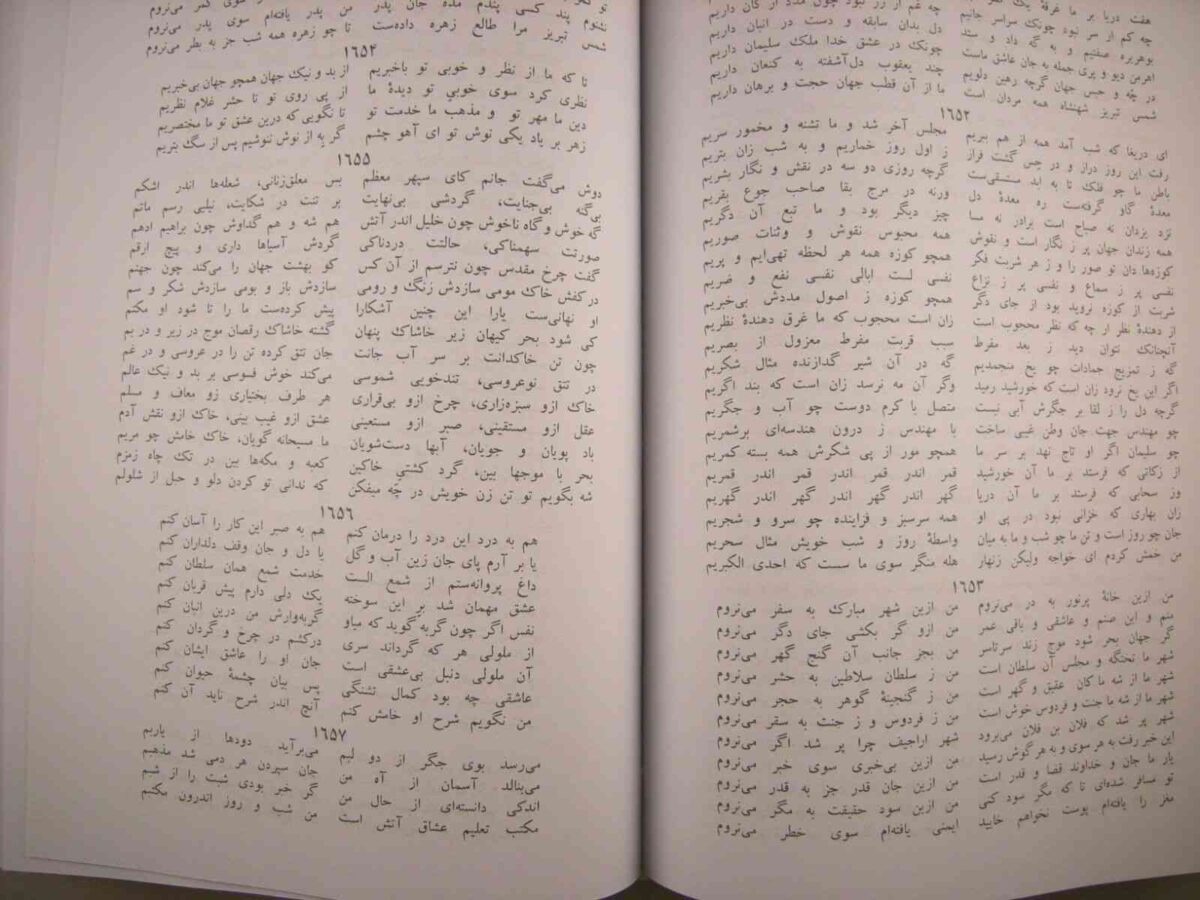 هفت دریا بر ما غرقهٔ یک
چه غم از زر نبود چون مدد از کان داریم
چه کم از سر نبود چونک سراسر جانیم
دل بدان سابقه و دست در انبان داریم
بوهریره صفتیم و به گه داد و ستد
چونک در عشق خدا ملک سلیمان داریم
اهرمن دیو و پری جمله به جان عاشق ماست
چند یعقوب دل‌آشفته به کنعان داریم
در چه و حبس جهان گرچه رهین دلویم
ما از آن قطب جهان حجت و برهان داریم
شمس تبریز شهنشاه همه مردان است
۱۶۵۲
ای دریغا که شب آمد همه از هم ببریم
مجلس آخر شد و ما تشنه و مخمور سریم
رفت این روز دراز و در حس گشت فراز
ز اول روز خماریم و به شب زان بتریم
باطن ما چو فلک تا به ابد مستسقی‌ست
گرچه روزی دو سه در نقش و نگار بشریم
معدهٔ گاو گرفته‌ست ره معدهٔ دل
ورنه در مرج بقا صاحب جوع بقریم
نزد یزدان نه صباح است برادر نه مسا
چیز دیگر بود و ما تبع آن دگریم
همه زندان جهان پر ز نگار است و نقوش
همه محبوس نقوش و وثنات صوریم
کوزه‌ها دان تو صور را و ز هر شربت فکر
همچو کوزه همه هر لحظه تهی‌ایم و پریم
نفسی پر ز سماع و نفسی پر ز نزاع
نفسی لست ابالی نفسی نفع و ضریم
شربت از کوزه نروید بود از جای دگر
همچو کوزه ز اصول مددش بی‌خبریم
از دهندهٔ نظر ار چه که نظر محجوب است
زان است محجوب که ما غرق دهندهٔ نظریم
آنچنانک نتوان دید ز بعد مفرط
سبب قربت مفرط معزول از بصریم
گه ز تمزیج جمادات چو یخ منجمدیم
گه در آن شیر گدازنده مثال شکریم
اگر این یخ نرود زان است که خورشید رمید
وگر آن مه نرسد زان است که بند اگریم
گرچه دل را ز لقا بر جگرش آبی نیست
متصل با کرم دوست چو آب و جگریم
چو مهندس جهت جان وطن غیبی ساخت
با مهندس ز درون هندسه‌ای برشمریم
چو سلیمان اگر او تاج نهد بر سر ما
همچو مور از پی شکرش همه بسته کمریم
از زکاتی که فرستد بر ما آن خورشید
قمر اندر قمر اندر قمر اندر قمریم
وز سحابی که فرستد بر ما آن دریا
گهر اندر گهر اندر گهر اندر گهریم
زان بهاری که خزانی نبود در پی او
همه سرسبز و فزاینده چو سرو و شجریم
جان چو روز است و تن ما چو شب و ما به میان
واسطهٔ روز و شب خویش مثال سحریم
من خمش کردم ای خواجه ولیکن زنهار
هله منگر سوی ما سست که احدی الکبریم
۱۶۵۳
من ازین خانهٔ پرنور به در می‌نروم
من ازین شهر مبارک به سفر می‌نروم
منم و این صنم و عاشقی و باقی عمر
من ازو گر بکشی جای دگر می‌نروم
گر جهان بحر شود موج زند سرتاسر
من بجز جانب آن گنج گهر می‌نروم
شهر ما تختگه و مجلس آن سلطان است
من ز سلطان سلاطین به حشر می‌نروم
شهر ما از شه ما کان عقیق و گهر است
من ز گنجینهٔ گوهر به حجر می‌نروم
شهر ما از شه ما جنت و فردوس خوش است
من ز فردوس و ز جنت به سقر می‌نروم
شهر پر شد که فلان بن فلان می‌برود
شهر اراجیف چرا پر شد اگر می‌نروم
این خبر رفت به هر سوی و به هر گوش رسید
من ازین بی‌خبری سوی خبر می‌نروم
یار ما جان و خداوند قضا و قدر است
من ازین جان قدر جز به قدر می‌نروم
تو مسافر شده‌ای تا که مگر سود کنی
من ازین سود حقیقت به مگر می‌نروم
مغز را یافته‌ام پوست نخواهم خایید
ایمنی یافته‌ام سوی خطر می‌نروم
نشنوم پند کسی پندم مده جان پدر
من پدر یافته‌ام سوی پدر می‌نروم
شمس تبریز مرا طالع زهره داده‌ست
تا چو زهره همه شب جز به بطر می‌نروم
۱۶۵۴
تا که ما از نظر و خوبی تو باخبریم
از بد و نیک جهان همچو جهان بی‌خبریم
نظری کرد سوی خوبی تو دیدهٔ ما
از پی روی تو تا حشر غلام نظریم
دین ما مهر تو و مذهب ما خدمت تو
تا نگویی که درین عشق تو ما مختصریم
زهر بر یاد یکی نوش تو ای آهو چشم
گر به از نوش ننوشیم پس از سگ بتریم
۱۶۵۵
دوش می‌گفت جانم کای سپهر معظم
بس معلق‌زنانی، شعله‌ها اندر اشکم
بی‌گنه بی‌جنایت، گردشی بی‌نهایت
بر تنت در شکایت، نیلیی رسم ماتم
گه خوش و گاه ناخوش چون خلیل اندر آتش
هم شه و هم گداوش چون براهیم ادهم
صورتت سهمناکی، حالتت دردناکی
گردش آسیاها داری و پیچ ارقم
گفت چرخ مقدس چون نترسم از آن کس
کو بهشت جهان را می‌کند چون جهنم
در کفش خاک مومی سازدش زنگ و رومی
سازدش باز و بومی سازدش شکر و سم
او نهانی‌ست یارا این چنین آشکارا
پیش کرده‌ست ما را تا شود او مکتم
کی شود بحر کیهان زیر خاشاک پنهان
گشته خاشاک رقصان موج در زیر و در بم
چون تن خاکدانت بر سر آب جانت
جان تتق کرده تن را در عروسی و در غم
در تتق نوعروسی، تندخویی شموسی
می‌کند خوش فسوسی بر بد و نیک عالم
خاک ازو سبزه‌زاری، چرخ ازو بی‌قراری
هر طرف بختیاری زو معاف و مسلم
عقل ازو مستقینی، صبر ازو مستعینی
عشق ازو غیب بینی، خاک ازو نقش آدم
باد پویان و جویان، آبها دست‌شویان
ما مسیحانه گویان، خاک خامش چو مریم
بحر با موجها بین، گرد کشتیِ خاکین
کعبه و مکه‌ها بین در تک چاه زمزم
شه بگویم تو تن زن خویش در چه میفکن
که ندانی تو کردن دلو و حبل از شلولم
۱۶۵۶
هم به درد این درد را درمان کنم
هم به صبر این کار را آسان کنم
یا بر آرم پای جان زین آب و گل
یا دل و جان وقف دلداران کنم
داغ پروانه‌ستم از شمع الست
خدمت شمع همان سلطان کنم
عشق مهمان شد بر این سوخته
یک دلی دارم پیش قربان کنم
نفس اگر چون گربه گوید که میاو
گربه‌وارش من درین انبان کنم
از ملولی هر که گرداند سری
درکشم در چرخ و گردان کنم
آن ملولی دنبل بی‌عشقی است
جان او را عاشق ایشان کنم
عاشقی چه بود کمال تشنگی
پس بیان چشمهٔ حیوان کنم
من نگویم شرح او خامش کنم
آنچ اندر شرح ناید آن کنم
۱۶۵۷
می‌رسد بوی جگر از دو لبم
می‌برآید دودها از یاربم
می‌بنالد آسمان از آه من
جان سپردن هر دمی شد مذهبم
اندکی دانسته‌ای از حال من
گر خبر بودی شبت را از شبم
مکتب تعلیم عشاق آتش است
من شب و روز اندرون مکتبم